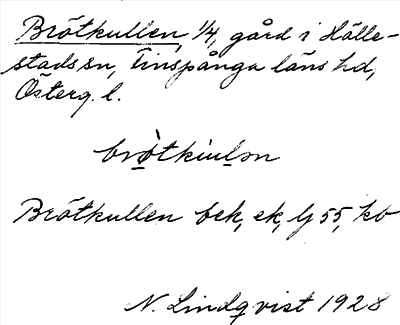 Brötkullen, 1/4, gård i Hälle-
stads sn, Finspånga läns hd,
Österg. l.
brò̱tkiuḻən
Brötkullen bek, ek, Gj 55, kb
N. Lindqvist 1928